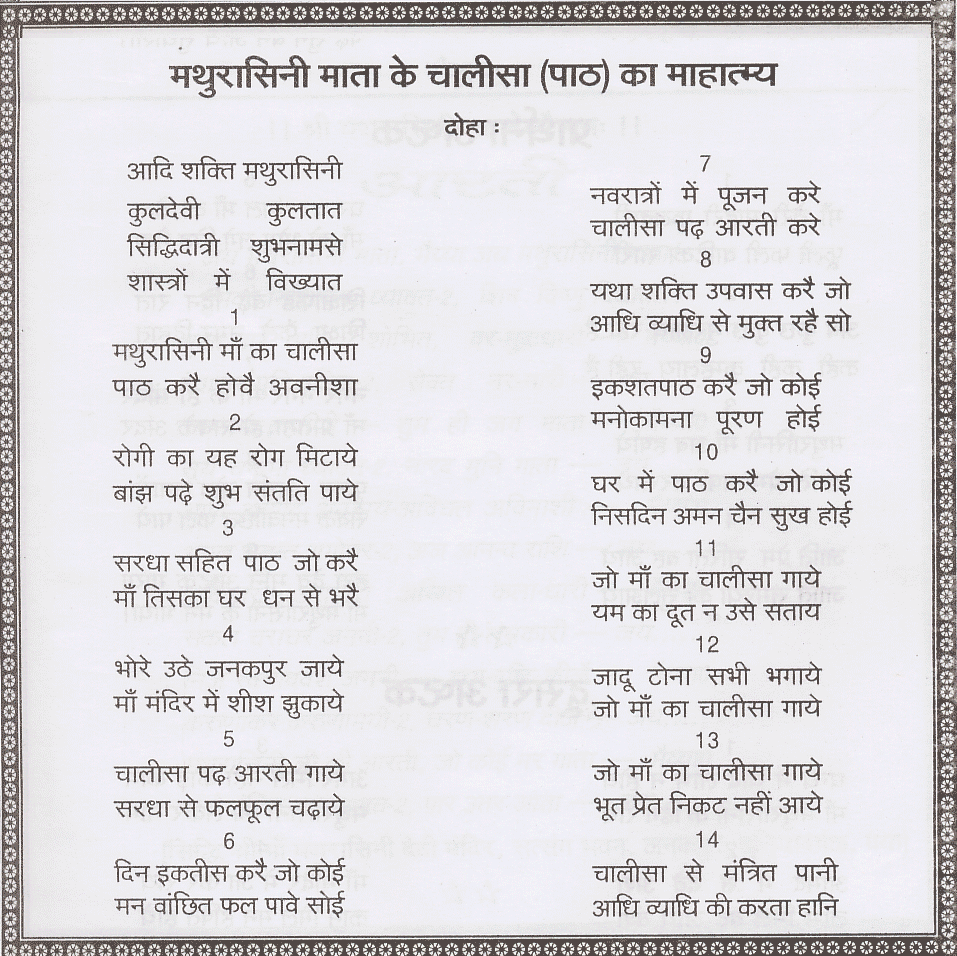 मथुरासिनी माता के चालीसा (पाठ) का माहात्म्य
दोहा :
आदि शक्ति मथुरासिनी
कुलदेवी कुलतात
सिद्धिदात्री शुभनामसे
शास्त्रों में विख्यात
1
मथुरासिनी माँ का चालीसा
पाठ करै होवै अवनीशा
2
रोगी का यह रोग मिटाये
बांझ पढ़े शुभ संतति पाये
3
सरधा सहित पाठ जो करै
माँ तिसका घर धन से भरै
4
भोरे उठे जनकपुर जाये
माँ मंदिर में शीश झुकाये
5
चालीसा पढ़ आरती गाये
सरधा से फलफूल चढ़ाये
6
दिन इकतीस करै जो कोई
मन वांछित फल पावे सोई
7
नवरात्रों में पूजन करे
चालीसा पढ़ आरती करे
8
यथा शक्ति उपवास करै जो
आधि व्याधि से मुक्त रहै सो
9
इकशतपाठ करै जो कोई
मनोकामना पूरण होई
10
घर में पाठ करै जो कोई
निसदिन अमन चैन सुख होई
11
जो माँ का चालीसा गाये
यम का दूत न उसे सताय
12
जादू टोना सभी भगाये
जो माँ का चालीसा गाये
13
जो माँ का चालीसा गाये
भूत प्रेत निकट नहीं आये
14
चालीसा से मंत्रित पानी
आधि व्याधि की करता हानि